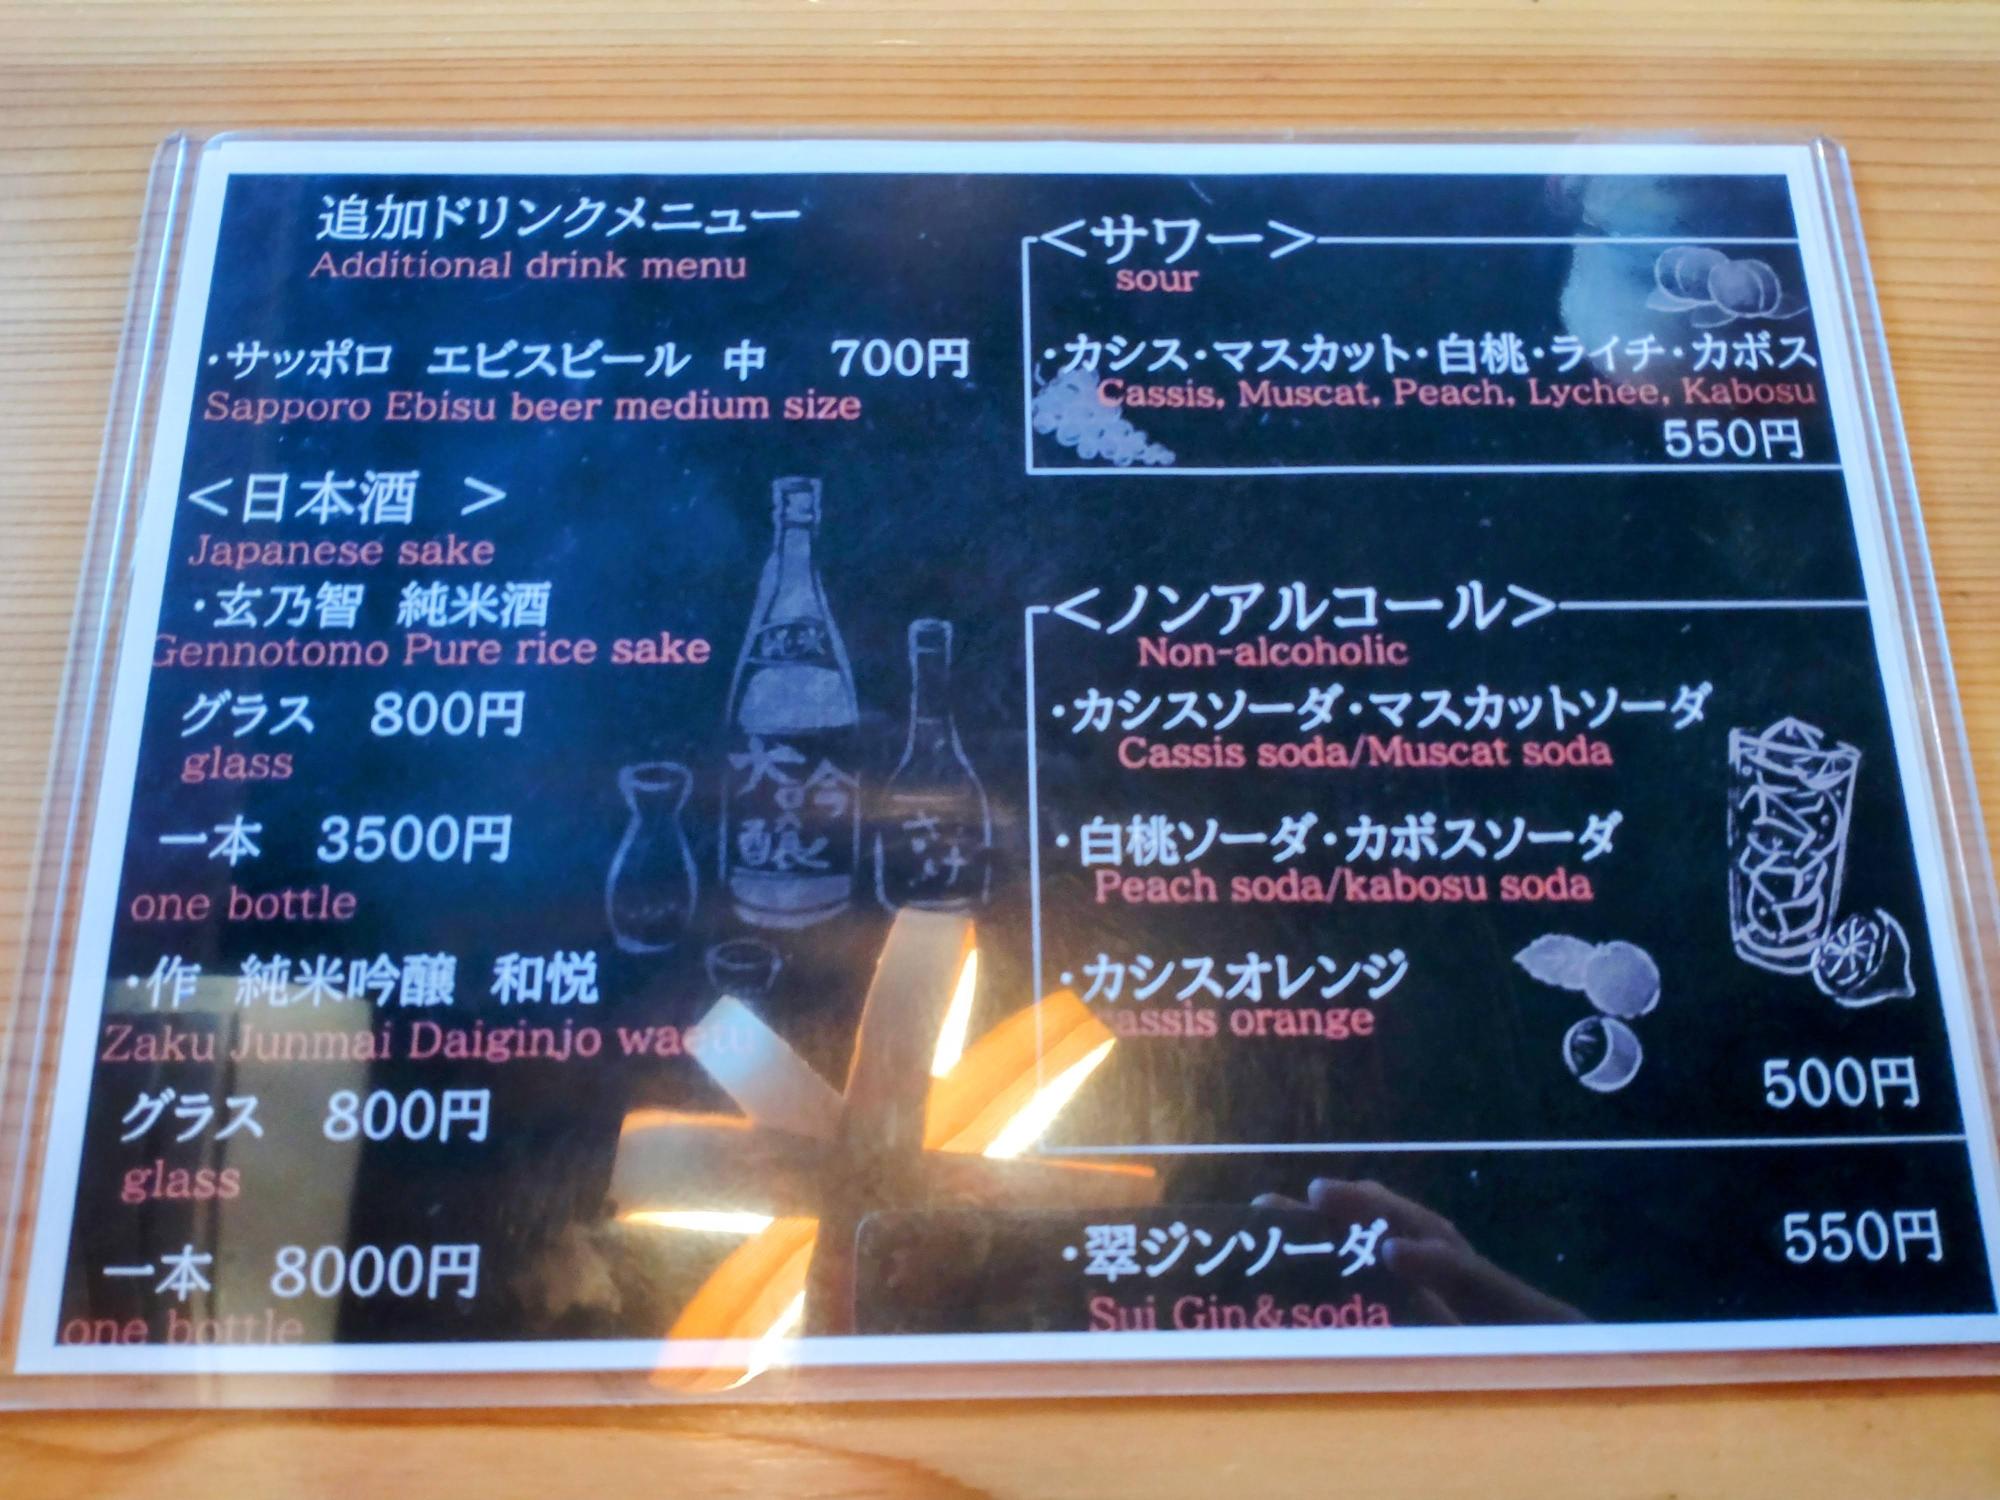 追加ドリンクメニュー
Additional drink menu
・サッポロ エビスビール 中 700円
Sapporo Ebisu beer medium size
<日本酒 >
Japanese sake
・玄乃智 純米酒
Gennotomo Pure rice sake
グラス 800円
glass
一本 3500円
one bottle
・作 純米吟醸 和悦
Zaku Junmai Daiginjo waetu
グラス 800円
glass
一本 8000円
one bottle
純米
大吟醸
さけ
<サワー>
sour
・カシス・マスカット・白桃・ライチ・カボス
Cassis, Muscat, Peach, Lychee, Kabosu
550円
<ノンアルコール>
Non-alcoholic
・カシスソーダ・マスカットソーダ
Cassis soda/Muscat soda
・白桃ソーダ・カボスソーダ
Peach soda/kabosu soda
・カシスオレンジ
cassis orange
500円
・翠ジンソーダ 550円
Sui Gin&soda